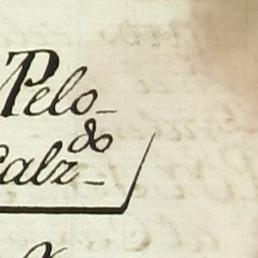 Pelo-
do
calz-